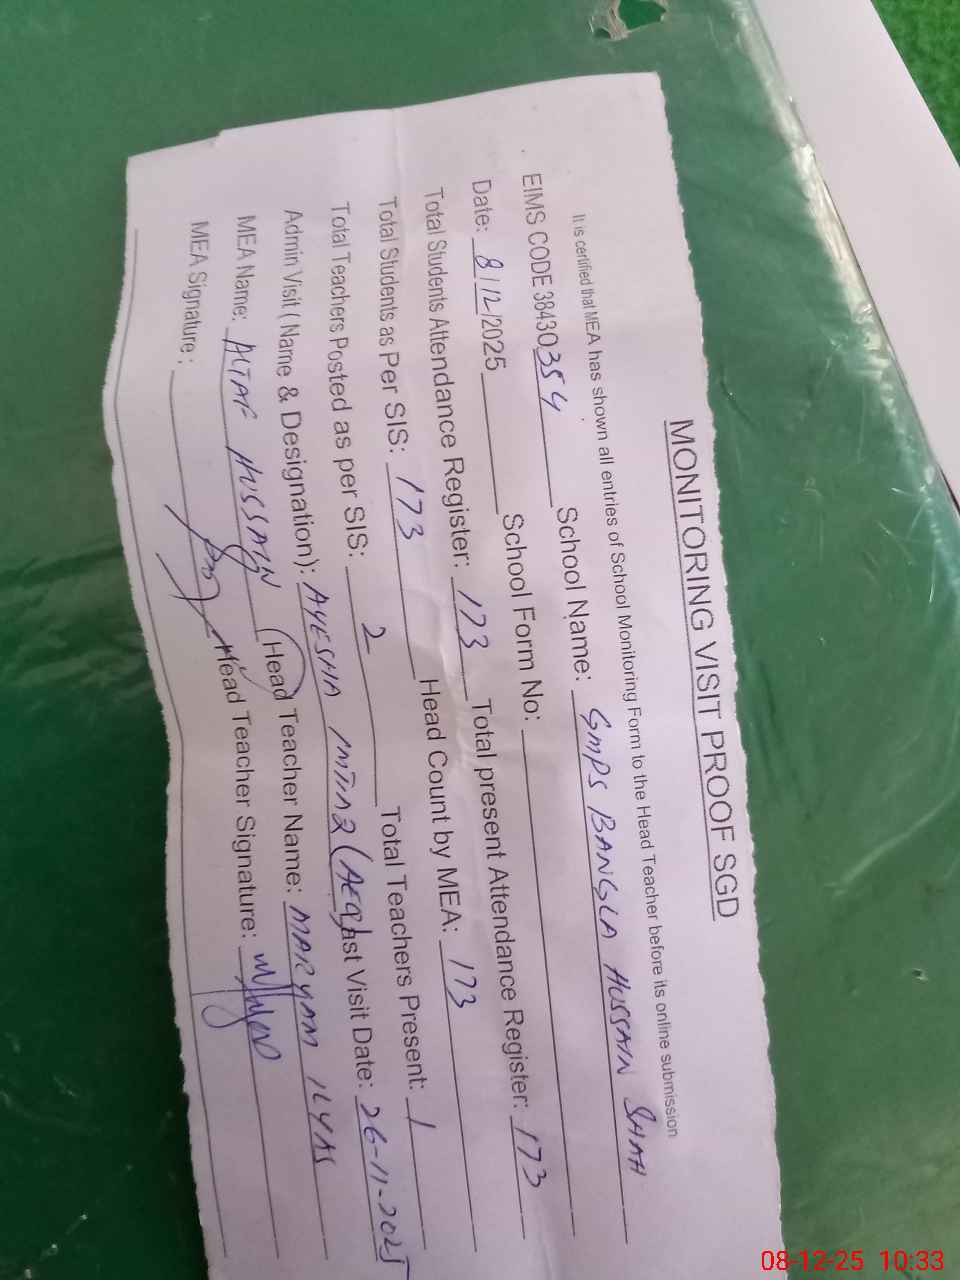 MONITORING VISIT PROOF SGD
It is certified that MEA has shown all entries of School Monitoring Form to the Head Teacher before its online submission
EIMS CODE 38430354 School Name: GMPS BANGLA HUSSAIN SHAH
Date: 8/12/2025 School Form No:
Total Students Attendance Register: 173 Total present Attendance Register: 173
Total Students as Per SIS: 173 Head Count by MEA: 173
Total Teachers Posted as per SIS: 2 Total Teachers Present: 1
Admin Visit ( Name & Designation): AYESHA IMTIAZ (AEO) Last Visit Date: 26-11-2025
MEA Name: ALTAF HUSSAIN Head Teacher Name: MARYAM ILYAS
MEA Signature : Head Teacher Signature:
08-12-25 10:33